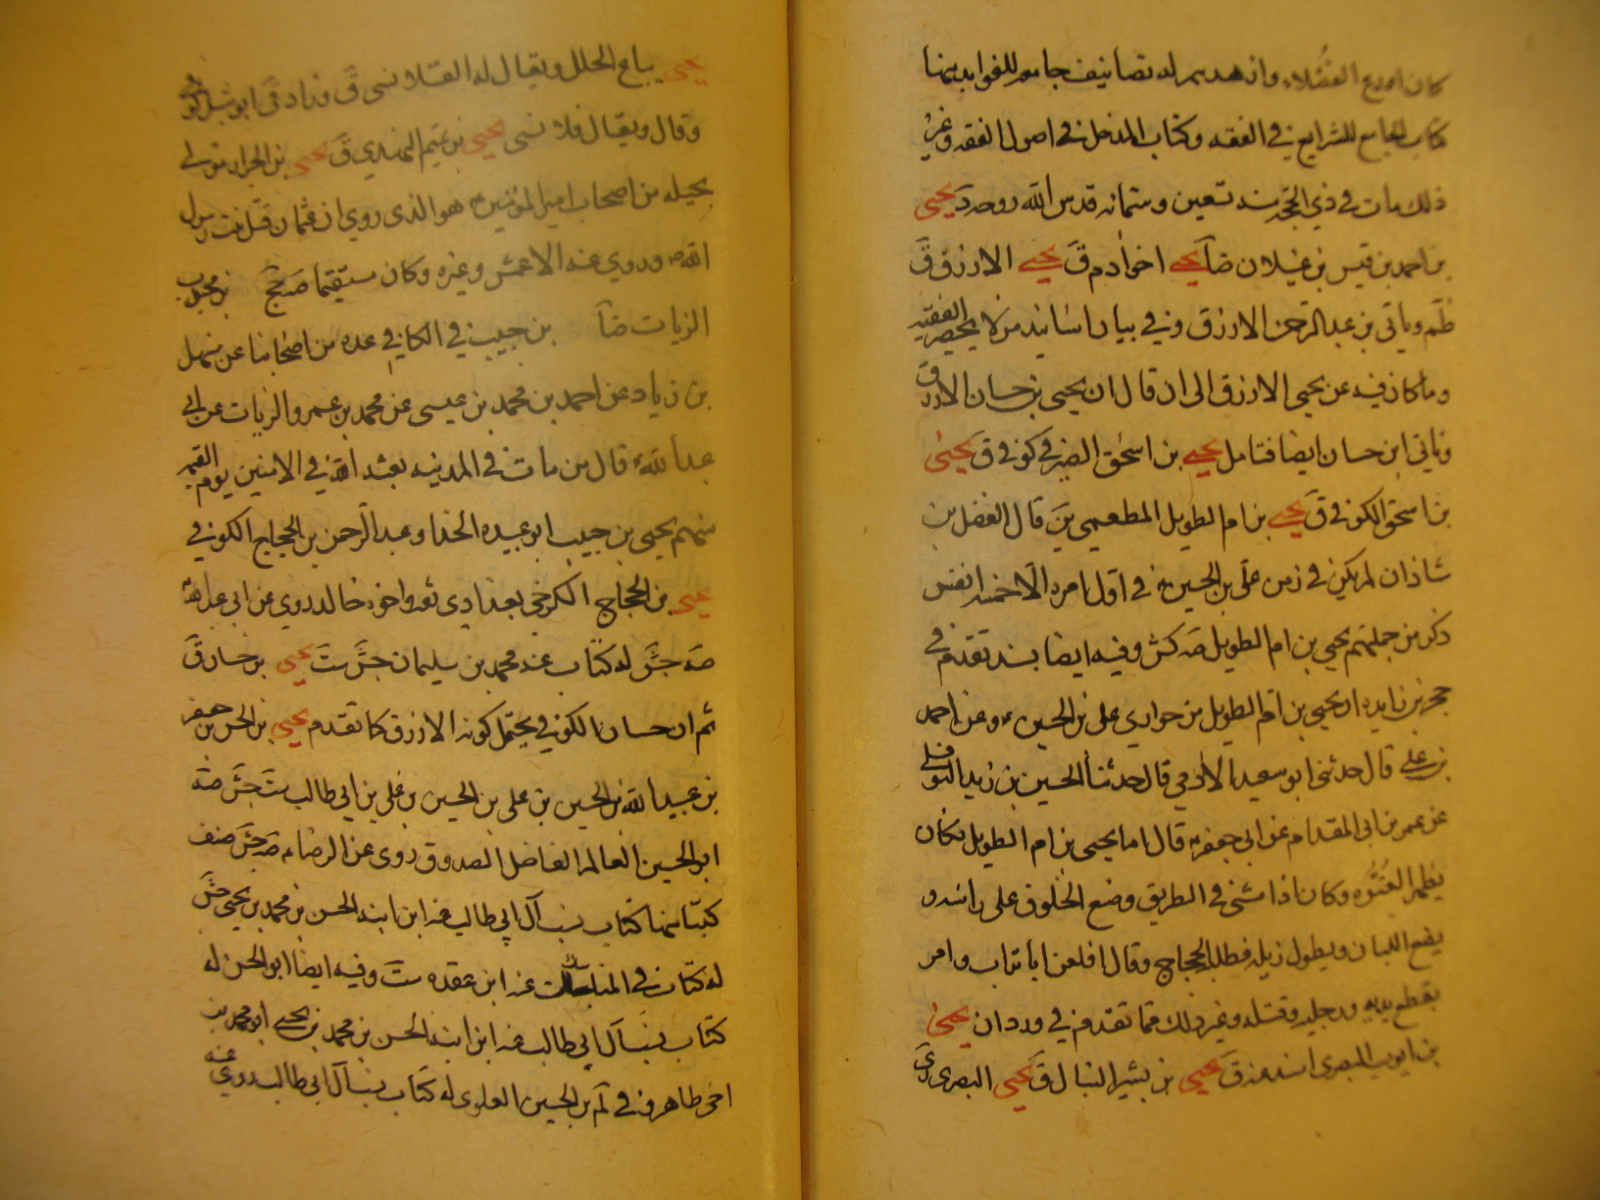 كان اورع الفضلاء وازهدهم له تصانيف جامعه للفوايد منها
كتاب الجامع للشرايع في الفقه وكتاب المدخل في اصول الفقه وغير
ذلك مات في ذي الحجه سنه تسعين وستمائه قدس الله روحه د يحيى
بن احمد بن قيس بن غيلان ضا يحيى اخو ادم ق يحيى الازرق ق
ظم وياتي بن عبد الرحمن الازرق وفي بيان اسانيد من لا يحضر الفقيه
وما كان فيه عن يحيى الازرق الى ان قال ان يحيى بن حسان الازرق
وياتي ابن حسان ايضا فتامل يحيى بن اسحق الصيرفي كوفي ق يحيى
بن اسحق الكوفي ق يحيى بن ام الطويل المطعمي ين قال الفضل بن
شاذان لم يكن في زمن علي بن الحسين ع في اول امره الا خمسه انفس
ذكر من جملتهم يحيى بن ام الطويل صه كش وفيه ايضا بسند تقدم في
حجر بن زايده ان يحيى بن ام الطويل من حواري علي بن الحسين ع وعن احمد
بن علي قال حدثني ابو سعيد الادمي قال حدثنا الحسين بن زيد النوفلي
عن عمر بن ابي المقدام عن ابي جعفر ع قال اما يحيى بن ام الطويل فكان
يظهر الفتوه وكان اذا مشى في الطريق وضع الخلوق على راسه و
يضع اللبان ويطول ذيله فطلبه الحجاج وقال افلعن ابا تراب وامر
بقطع يديه ورجليه وقتله وغير ذلك مما تقدم في وردان يحيى
بن ايوب البصري اسند عنه ق يحيى بن بشير النبال ق يحيى البصري ري
يحيى بياع الحلل ويقال له القلانسي ق وزاد قي ابو شبل كوفي
وقال ويقال قلانسي يحيى بن تميم النهدي ق يحيى بن الجزار مولى
بجيله من اصحاب امير المؤمنين ع هو الذي روى ان عثمان قتل بنت رسول
الله ص وروى عنه الاعمش وغيره وكان مستقيما صه جخ بن حبيب
الزيات ضا بن حبيب في الكافي في عده من اصحابنا عن سهل
بن زياد عن احمد بن محمد بن عيسى عن محمد بن عمرو الزيات عن ابي
عبد الله ع قال من مات في المدينه بعثه الله في الامنين يوم القيمه
منهم يحيى بن حبيب ابو عبيده الحذا وعبد الرحمن بن الحجاج الكوفي
يحيى بن الحجاج الكرخي بغدادي ثقه واخوه خالد روى عن ابي عبد الله ع
صه جش له كتاب عنه محمد بن سليمان جش ست يحيى بن حسان ق
ثم ان حسان الكوفي يحتمل كونه الازرق كما تقدم يحيى بن الحسن بن جعفر
بن عبيد الله بن الحسين بن علي بن الحسين بن علي بن ابي طالب ست جش صه
ابو الحسين العالم الفاضل الصدوق روى عن الرضا ع صه جش صنف
كتبا منها كتاب نسب آل ابي طالب عنه ابن ابنه الحسن بن محمد بن يحيى جش
له كتاب في المناسك عنه ابن عقده ست وفيه ايضا ابو الحسن له
كتاب نسب آل ابي طالب عنه ابن ابنه الحسن بن محمد بن يحيى ابو محمد بن
اخي طاهر وفي لم بن الحسين العلوي له كتاب نسب آل ابي طالب روى عنه